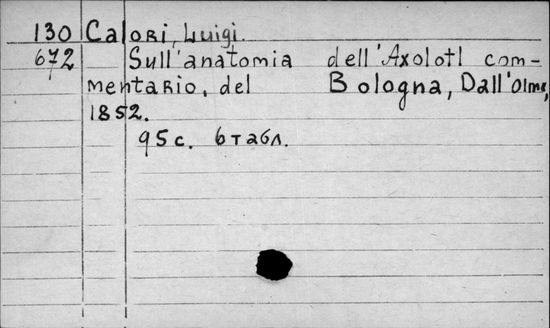 130 Calori, Luigi.
672 Sull'anatomia dell'Axolotl com-
mentario, del Bologna, Dall'Olmo,
1852.
95 с. 6 табл.